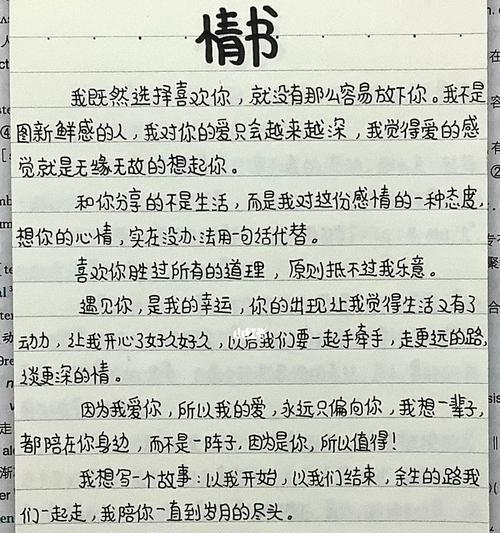 情书
我既然选择喜欢你，就没有那么容易放下你。我不是
图新鲜感的人，我对你的爱只会越来越深，我觉得爱的感
觉就是无缘无故的想起你。
和你分享的不是生活，而是我对这份感情的一种态度，
想你的心情，实在没办法用一句话代替。
喜欢你胜过所有的道理，原则抵不过我乐意。
遇见你，是我的幸运，你的出现让我觉得生活又有了
动力，让我开心了好久好久，以后我们要一起手牵手，走更远的路，
谈更深的情。
因为我爱你，所以我的爱，永远只偏向你，我想一辈子，
都陪在你身边，而不是一阵子，因为是你，所以值得！
我想写一个故事：以我开始，以我们结束，余生的路我
们一起走，我陪你一直到岁月的尽头。